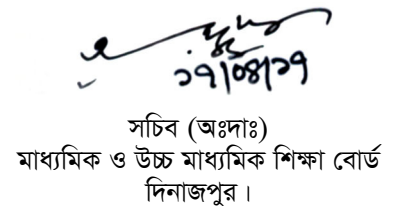 ১৭/০৪/১৭
সচিব (অঃদাঃ)
মাধ্যমিক ও উচ্চ মাধ্যমিক শিক্ষা বোর্ড
দিনাজপুর।